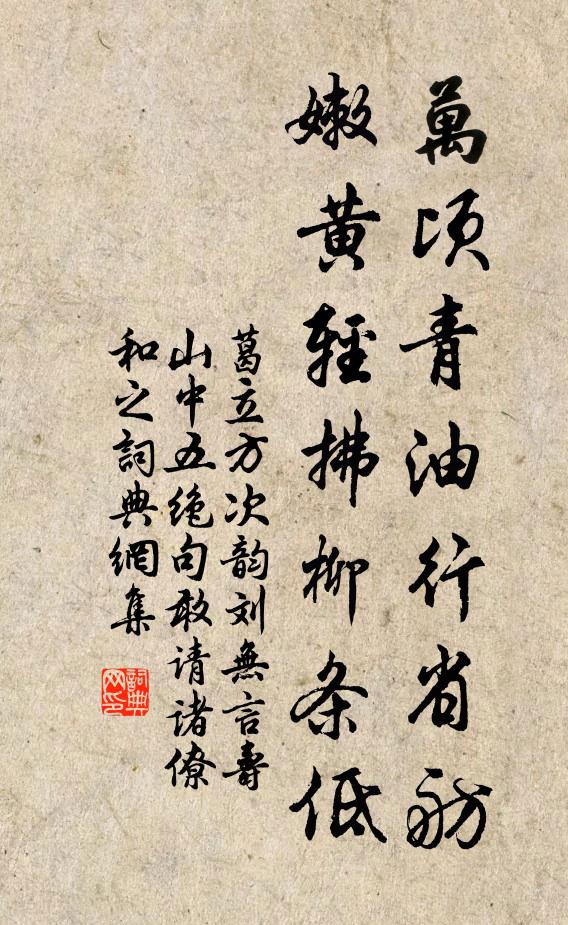 萬頃青油行省舫
嫩黄輕拂柳条低
葛立方次韵刘無言壽
山中五绝句敢请诸僚
和之詞典網集
詞典
网印